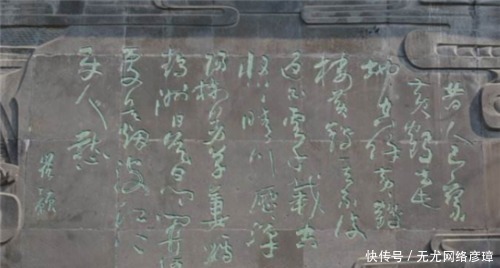 昔人已乘
黄鹤去
此地空余黄鹤
楼黄鹤一去不復
返白雲千載空
悠悠晴川歷歷漢
陽樹芳草萋萋鸚
鵡洲日暮鄉關何
處是烟波江上
使人愁
崔颢
快传号/无尤网络彦璋